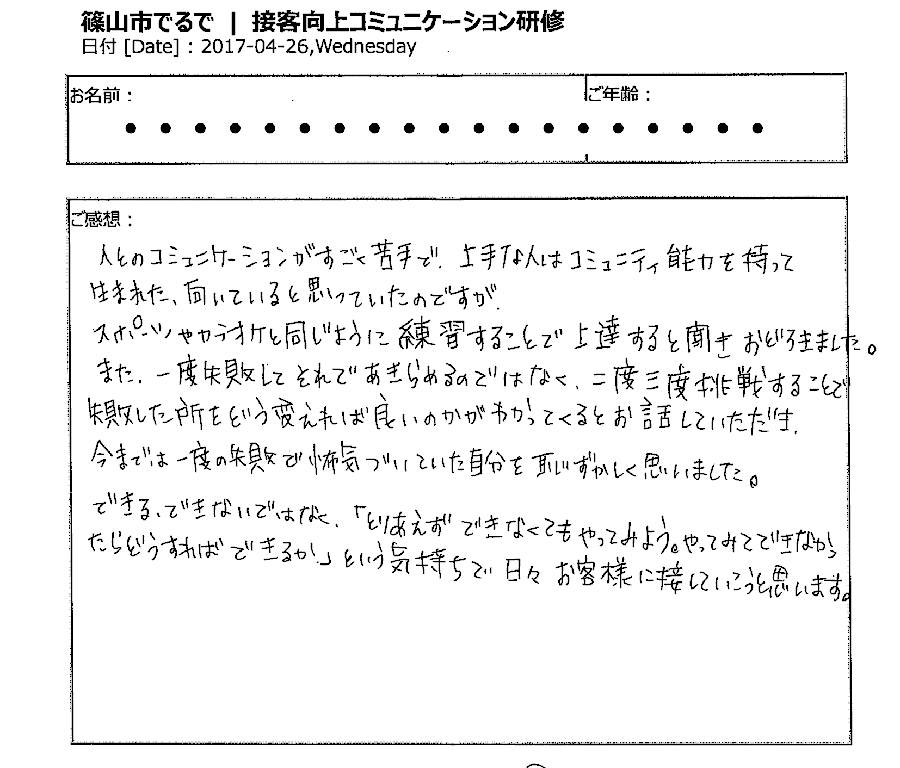 篠山市でるで | 接客向上コミュニケーション研修
日付 [Date] : 2017-04-26,Wednesday
お名前:
ご年齢:
ご感想:
人とのコミュニケーションがすごく苦手で、上手な人はコミュニティ能力を持って
生まれた、向いていると思っていたのですが、
スポーツやカラオケと同じように練習することで上達すると聞きおどろきました。
また、一度失敗してそれであきらめるのではなく、二度三度挑戦することで
失敗した所をどう変えれば良いのかがわかってくるとお話していただき、
今までは一度の失敗で怖気づいていた自分を恥ずかしく思いました。
できる、できないではなく、「とりあえずできなくてもやってみよう。やってみてできなかっ
たらどうすればできるか」という気持ちで日々お客様に接していこうと思います。